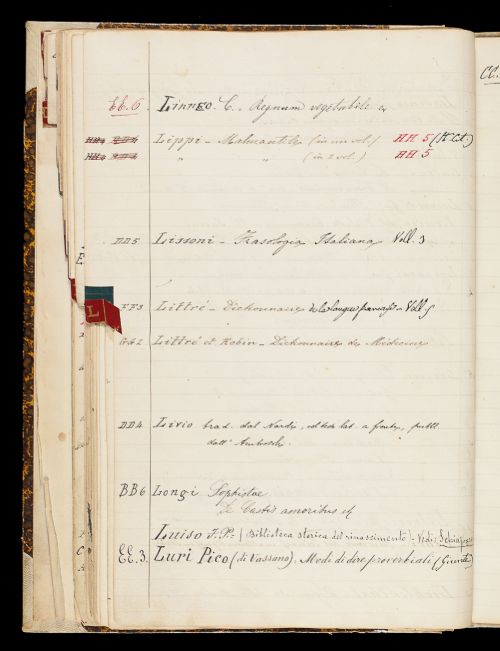 CC.
EE. 6. Linneo. C. Regnum vegetabile &
Lippi - Malmantile (in un vol.) HH 5 (N.Ct.)
" " (in 2 vol.) HH 5
DD5 Lissoni - Frasologia Italiana Voll. 3
L
FF3 Littré - Dictionnaire de la langue française - Voll 5
GG2 Littré et Robin - Dictionnaire de Médecine
DD4 Livio trad. dal Nardi, col testo lat. a fronte, pubbl.
dall'
BB6 Longi Sophistae
De Castis amoribus et
Luiso F. P. / Biblioteca storica del rinascimento). Vedi
EE. 3. Luri Pico (di Vassano). Modi di dire proverbiali (Giunte)